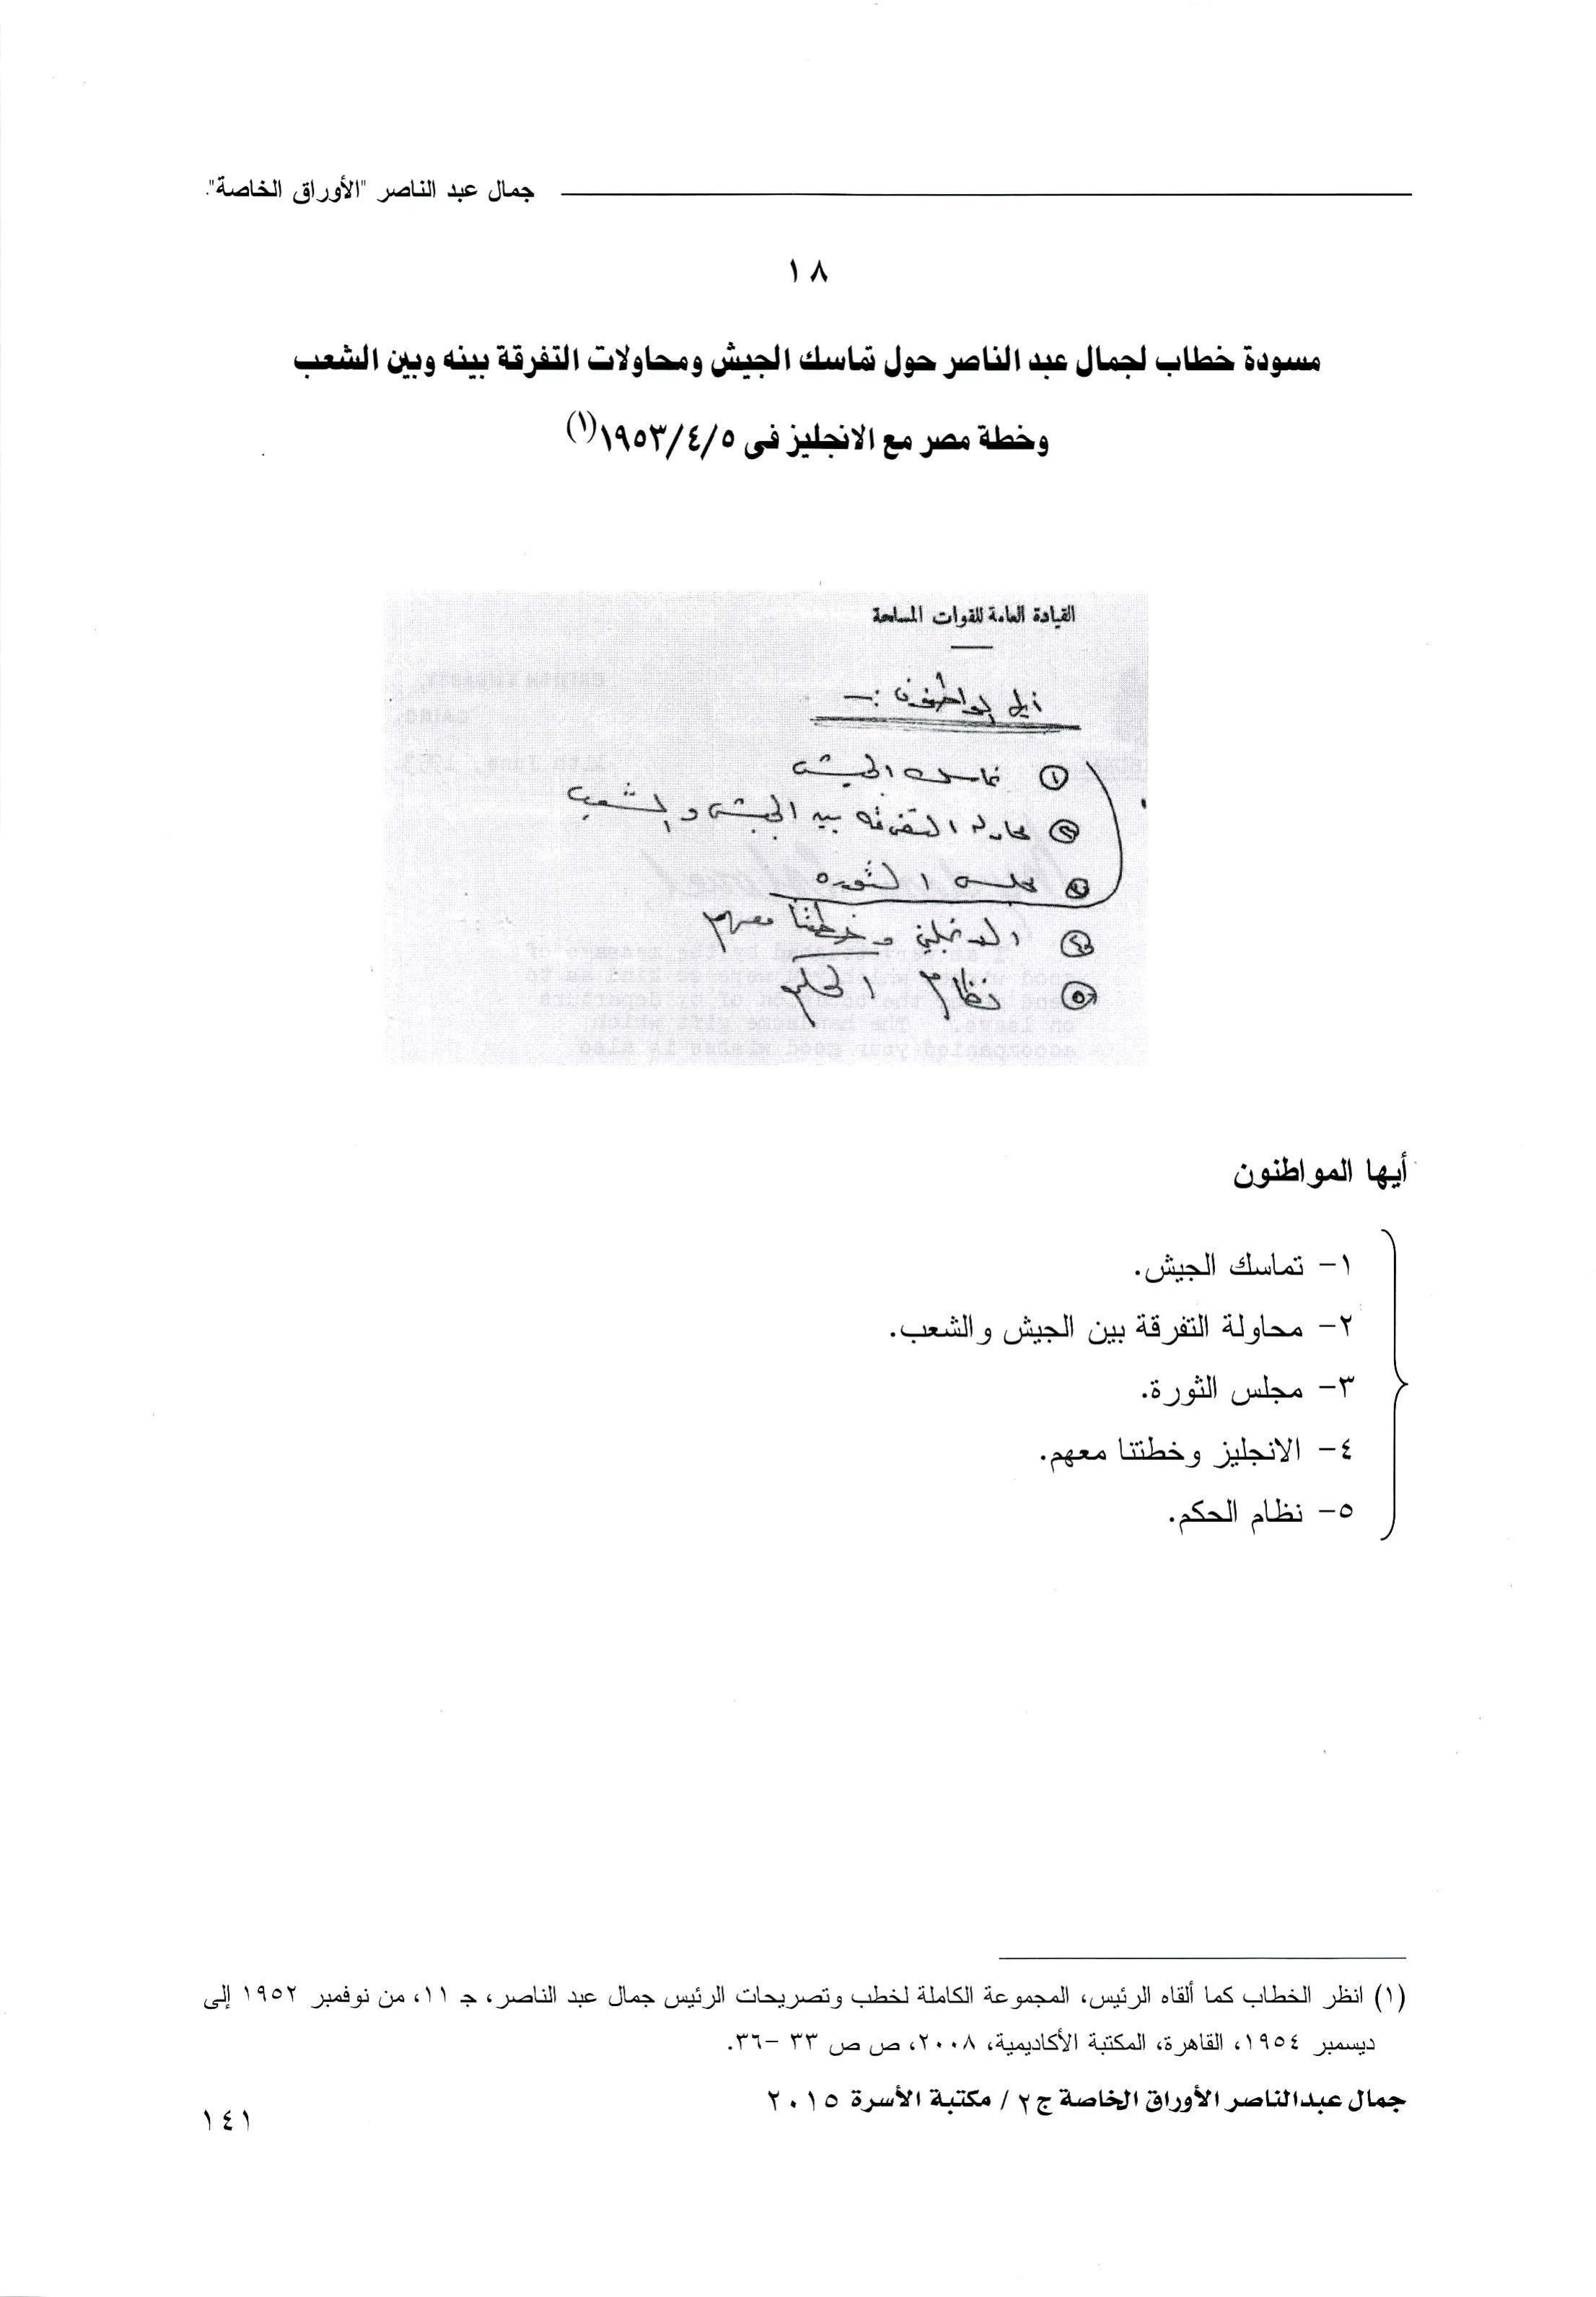 جمال عبد الناصر "الأوراق الخاصة".
١٨
مسودة خطاب لجمال عبد الناصر حول تماسك الجيش ومحاولات التفرقة بينه وبين الشعب
وخطة مصر مع الانجليز فى ١٩٥٣/٤/٥(١)
القيادة العامة للقوات المسلحة
أيها المواطنون :-
١ تماسك الجيش
٢ محاولة التفرقه بين الجيش والشعب
٣ مجلس الثوره
٤ الانجليز وخطتنا معهم
٥ نظام الحكم
أيها المواطنون
١- تماسك الجيش.
٢- محاولة التفرقة بين الجيش والشعب.
٣- مجلس الثورة.
٤- الانجليز وخطتنا معهم.
٥- نظام الحكم.
(١) انظر الخطاب كما ألقاه الرئيس، المجموعة الكاملة لخطب وتصريحات الرئيس جمال عبد الناصر، جـ ١١، من نوفمبر ١٩٥٢ إلى
ديسمبر ١٩٥٤، القاهرة، المكتبة الأكاديمية، ٢٠٠٨، ص ص ٣٣ -٣٦.
جمال عبدالناصر الأوراق الخاصة ج٢ / مكتبة الأسرة ٢٠١٥
١٤١